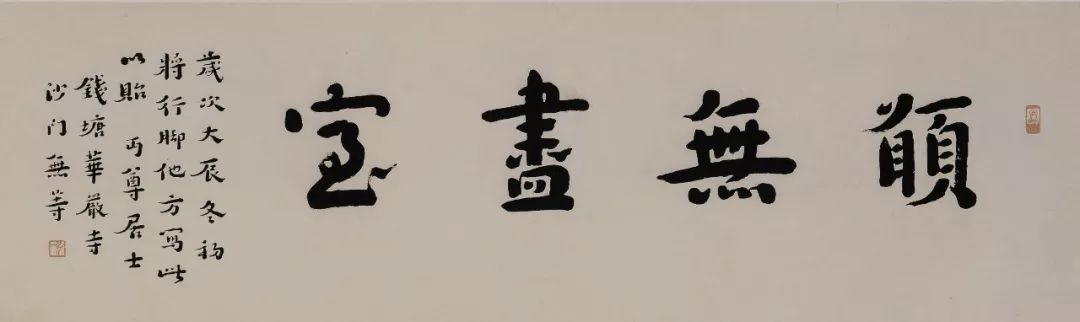 願無盡室
歲次大辰冬初
將行脚他方寫此
以貽 丏尊居士
錢塘華嚴寺
沙门無等